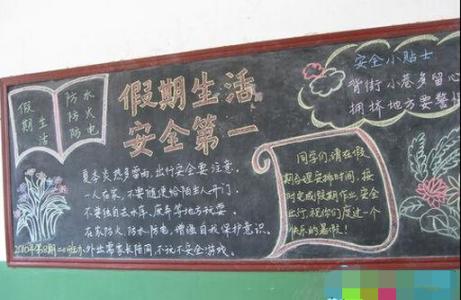 假期生活
防水
防火
防电
假期生活
安全第一
夏季炎热多雷雨,出行安全要注意,
一人在家,不要随便给陌生人开门,
不要独自去水库、
等地方玩耍,
在家防火、防水、防电,增强自我保护意识。
外出需家长陪同,不玩不安全游戏。
同学们,请在假
期合理安排时间,按
时完成假期作业,安全
出行,祝你们度过一个
快乐的暑假!
安全小贴士
背街小巷多留心
拥挤地方要警惕